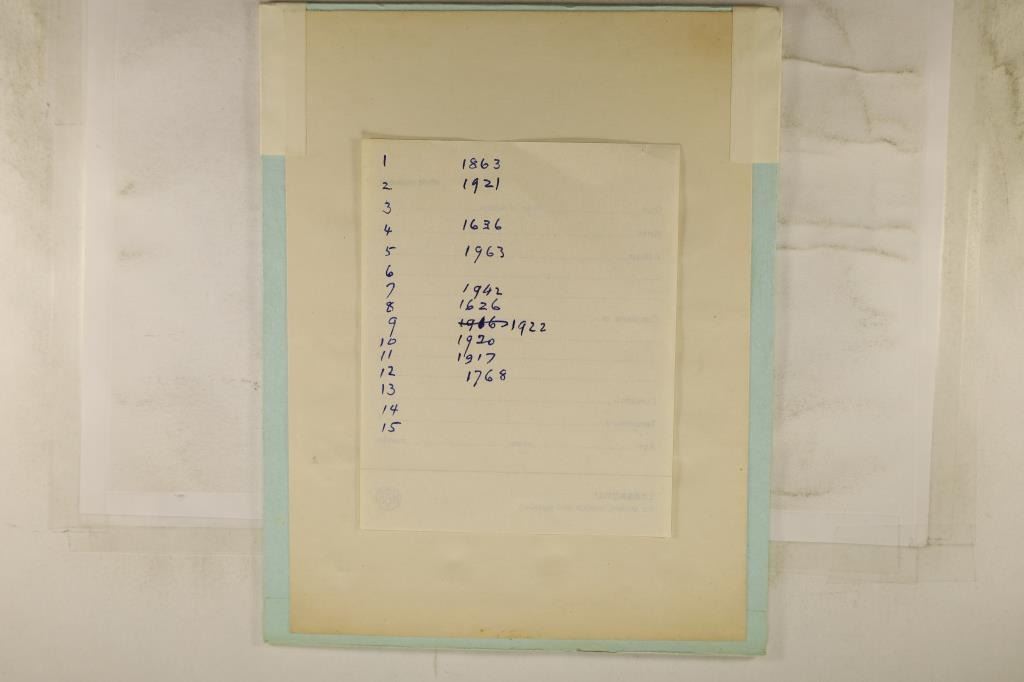 1 1863
2 1921
3
4 1636
5 1963
6
7 1942
8 1626
9 1922
10 1920
11 1917
12 1768
13
14
15